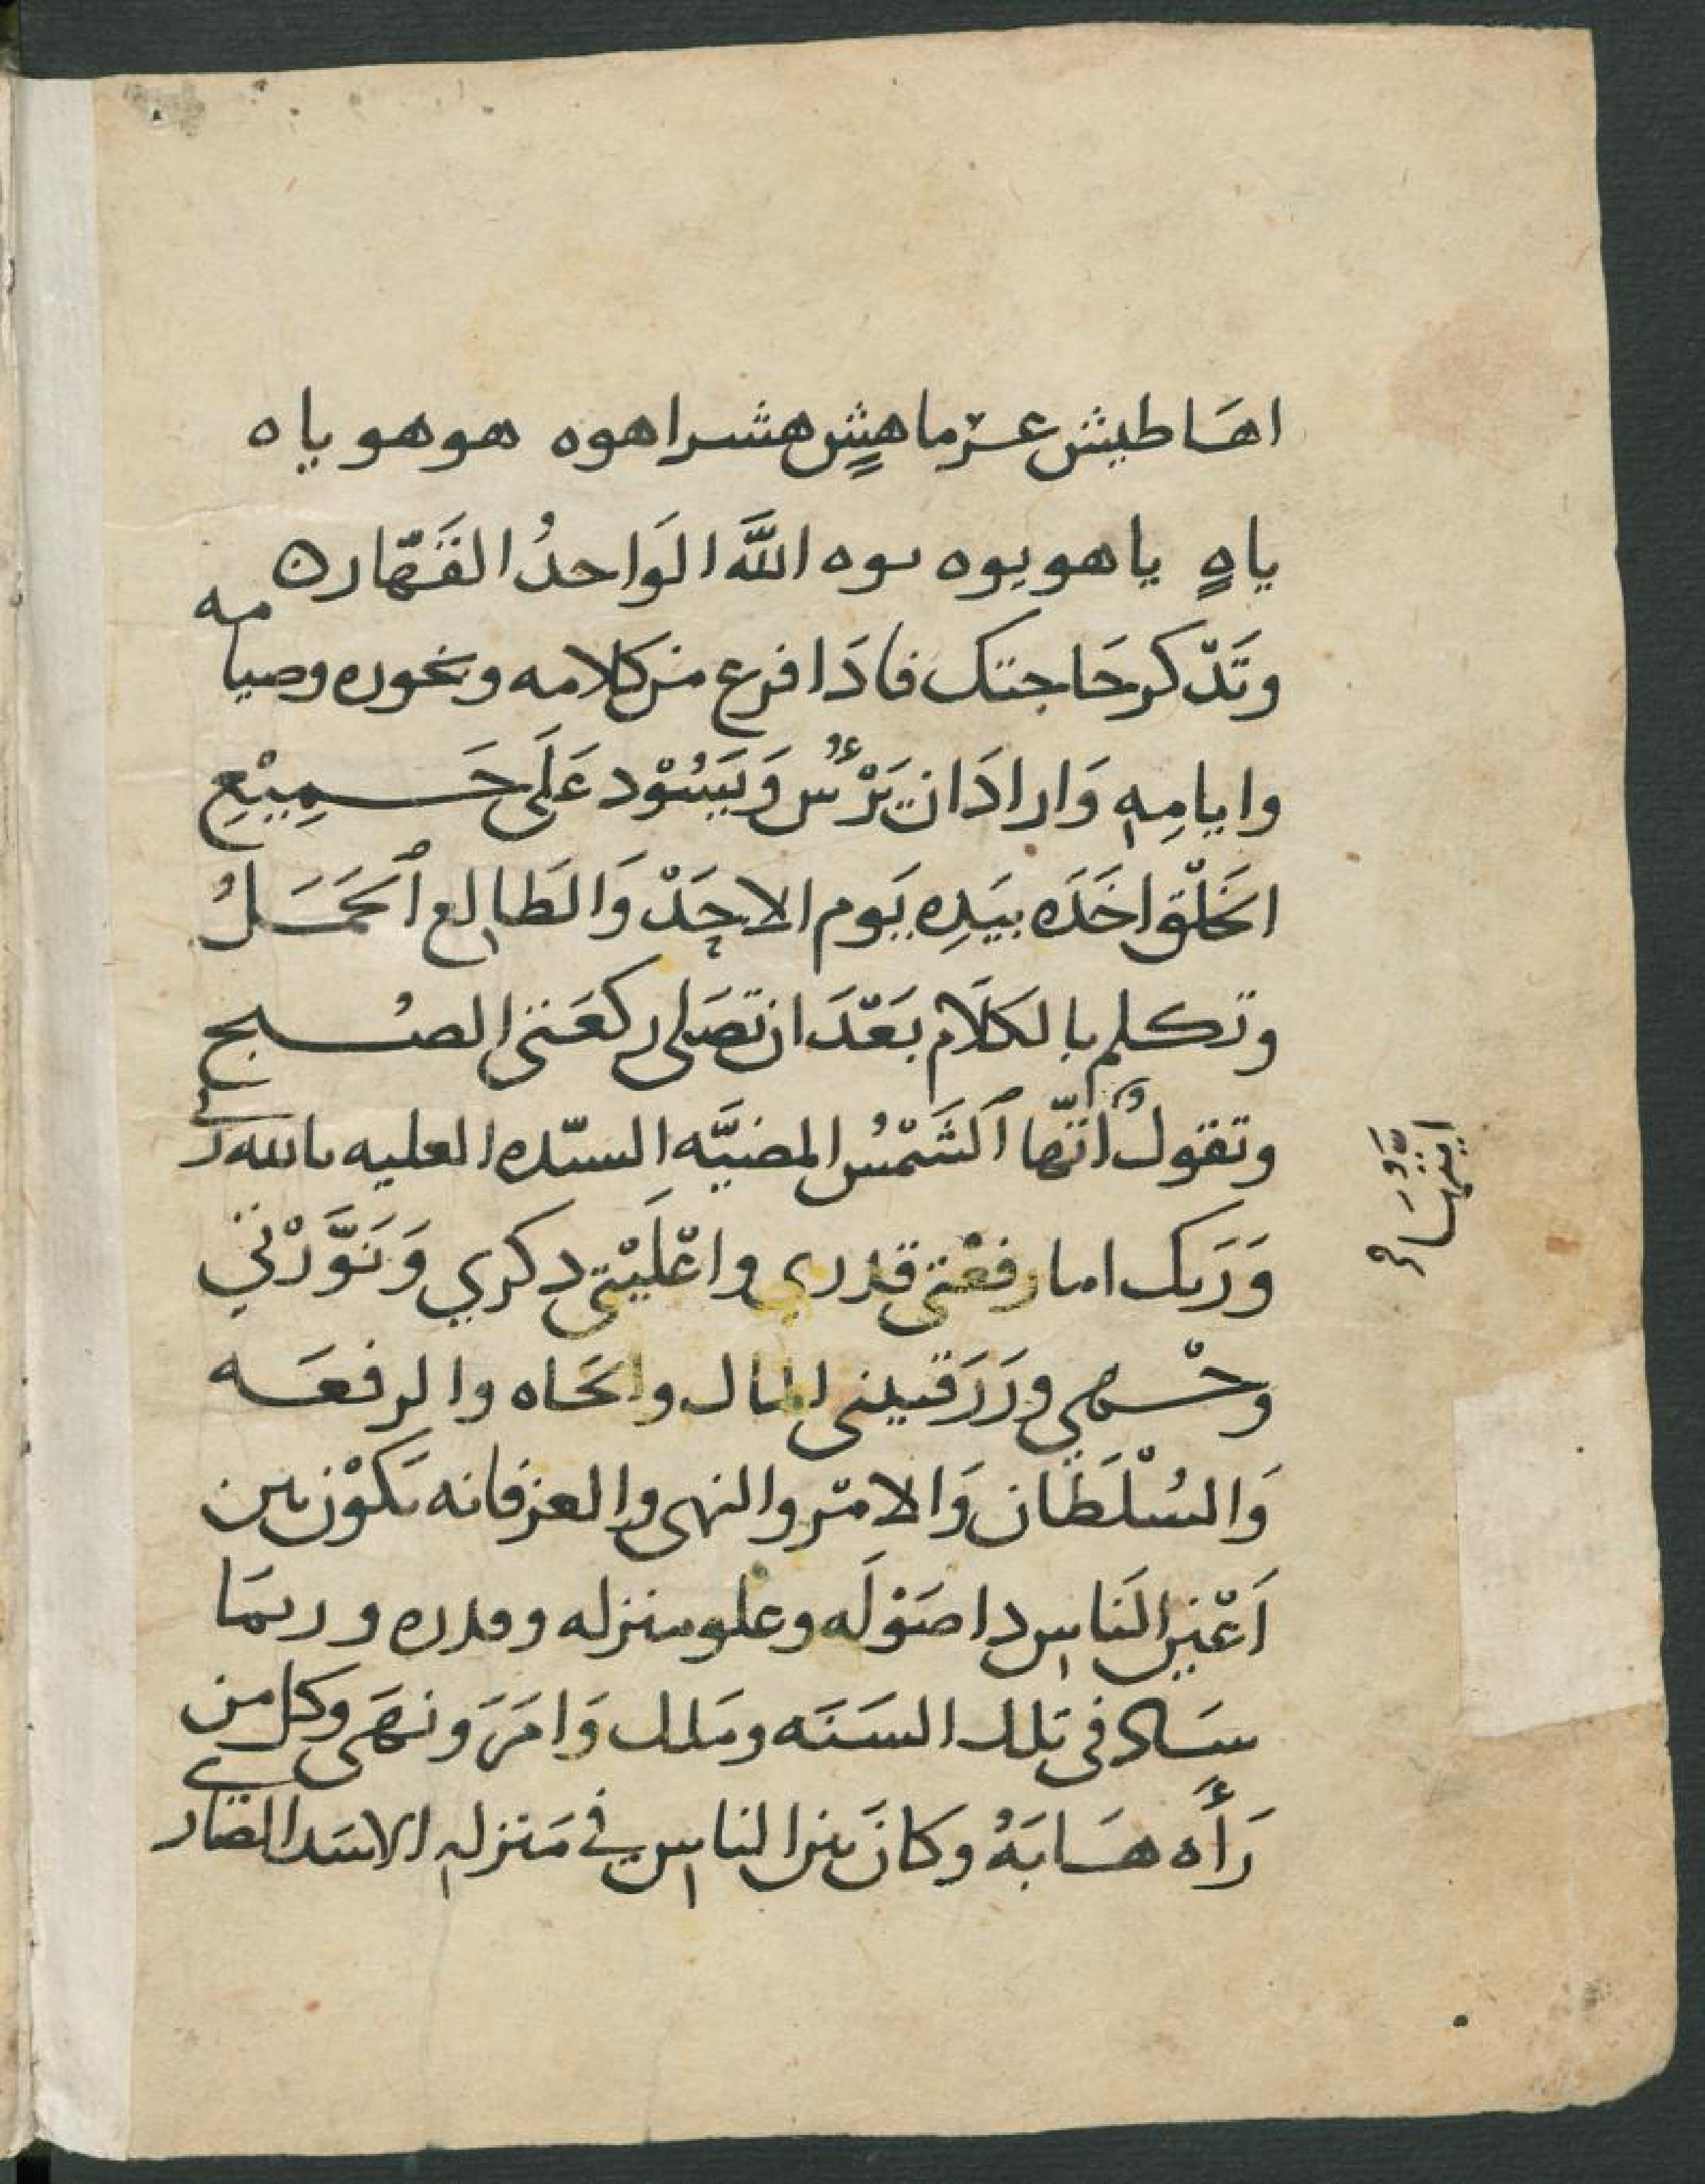 اهَاطيش عزماهِشٍ هشراهوه هوهو ياه
ياهٍ ياهو يوه ىوه اللَّه الوَاحدُ القَهّار
وتَدّكر حَاجتك فادَا فرع من كلامه وبخوره وصيامه
وايامِهِ وَارادَ ان يَرْؤُس وَيَسُوْد عَلَى جَمِيْعِ
الخَلْق اخَدَه بيَدِه يَوم الاحَدْ وَالطَالِع الحَمَلُ
وتكلم بالكَلَام بَعْدَ ان تصَلى ركعَتى الصُبح
وتقولُ أيّتها الشَمْسُ المضيَّه السيّده العليه بالله ربى
وَرَبك اما رفعْتى قدرى واعْلَيْتى دكري وَنَوَّرْتي
وجْهى ورَزَقتينى المال والجَاه والرفعَه
وَالسُلْطَان وَالامْر والنهى والعز فانه يَكوْن بين
اَعْيُن الناسِ دا صَوْلَه وعلو منزله وقدره وربمَا
سَاد فى تلك السَنَه وملك وَامَرَ ونهَى وكل من
رَأَه هَابَهُ وكانَ بين الناسِ في مَنزلهِ الاسَد الضارى
ايتهَا